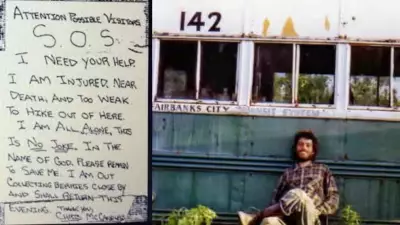 Attention Possible Visitors
S.O.S.
I Need your Help.
I am Injured, Near
Death, and too Weak
to Hike out of Here.
I am All Alone, This
is No Joke. In the
Name of God, Please Remain
to Save Me. I am out
Collecting Berries Close by
and Shall Return this
Evening. Thank you,
Chris McCandless
142
FAIRBANKS CITY TRANSIT SYSTEM